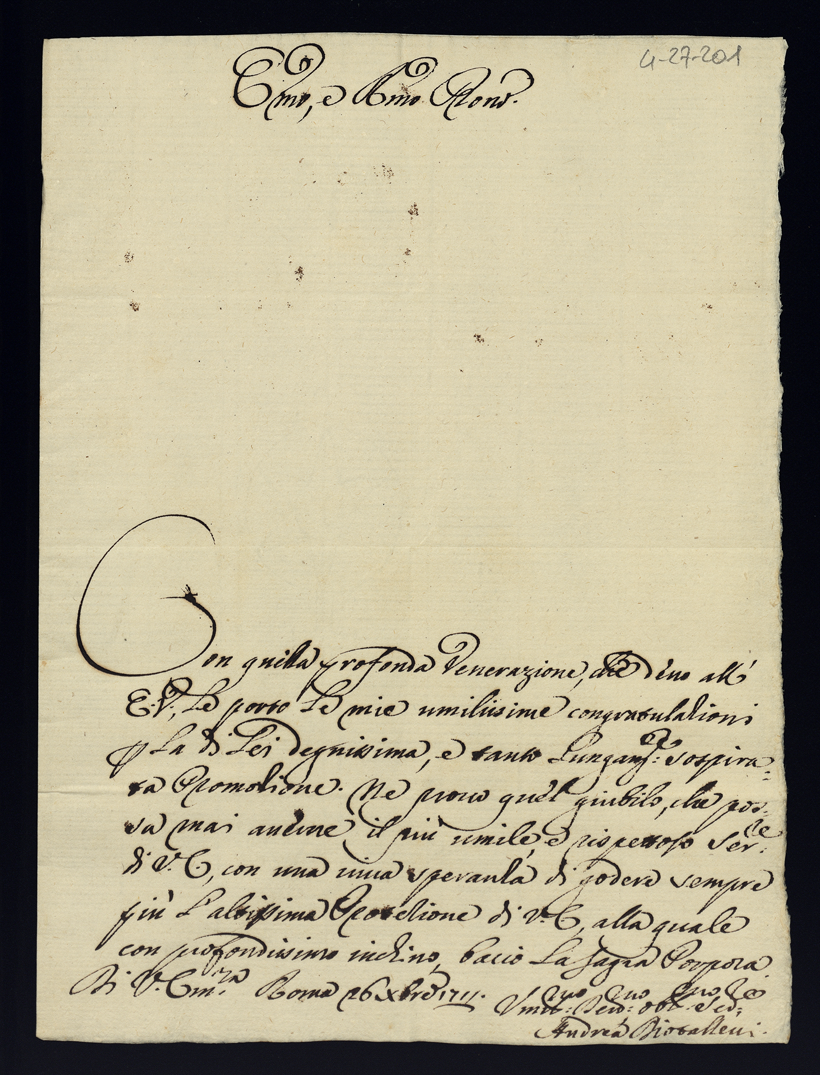 4-27-201
Emo, e Rmo Prone.
Con quella profonda Venerazione, che devo all'
E.V., Le porto Le mie umilissime congratulationi
p La di Lei degnissima, e tanto Lungamte: sospira-
ta Promotione. Ne provo quel giubilo, che pos-
sa mai averne il più umile, e rispettoso Serre:
di V.E, con una viva speranza di godere sempre
più L'altissima Protetione di V.E, alla quale
con profondissimo inchino, baccio La sagra Porpora
Di V. Emza Roma 26 Xbre 1711.
Vmilmo: Devmo: obbmo Sere:
Andrea